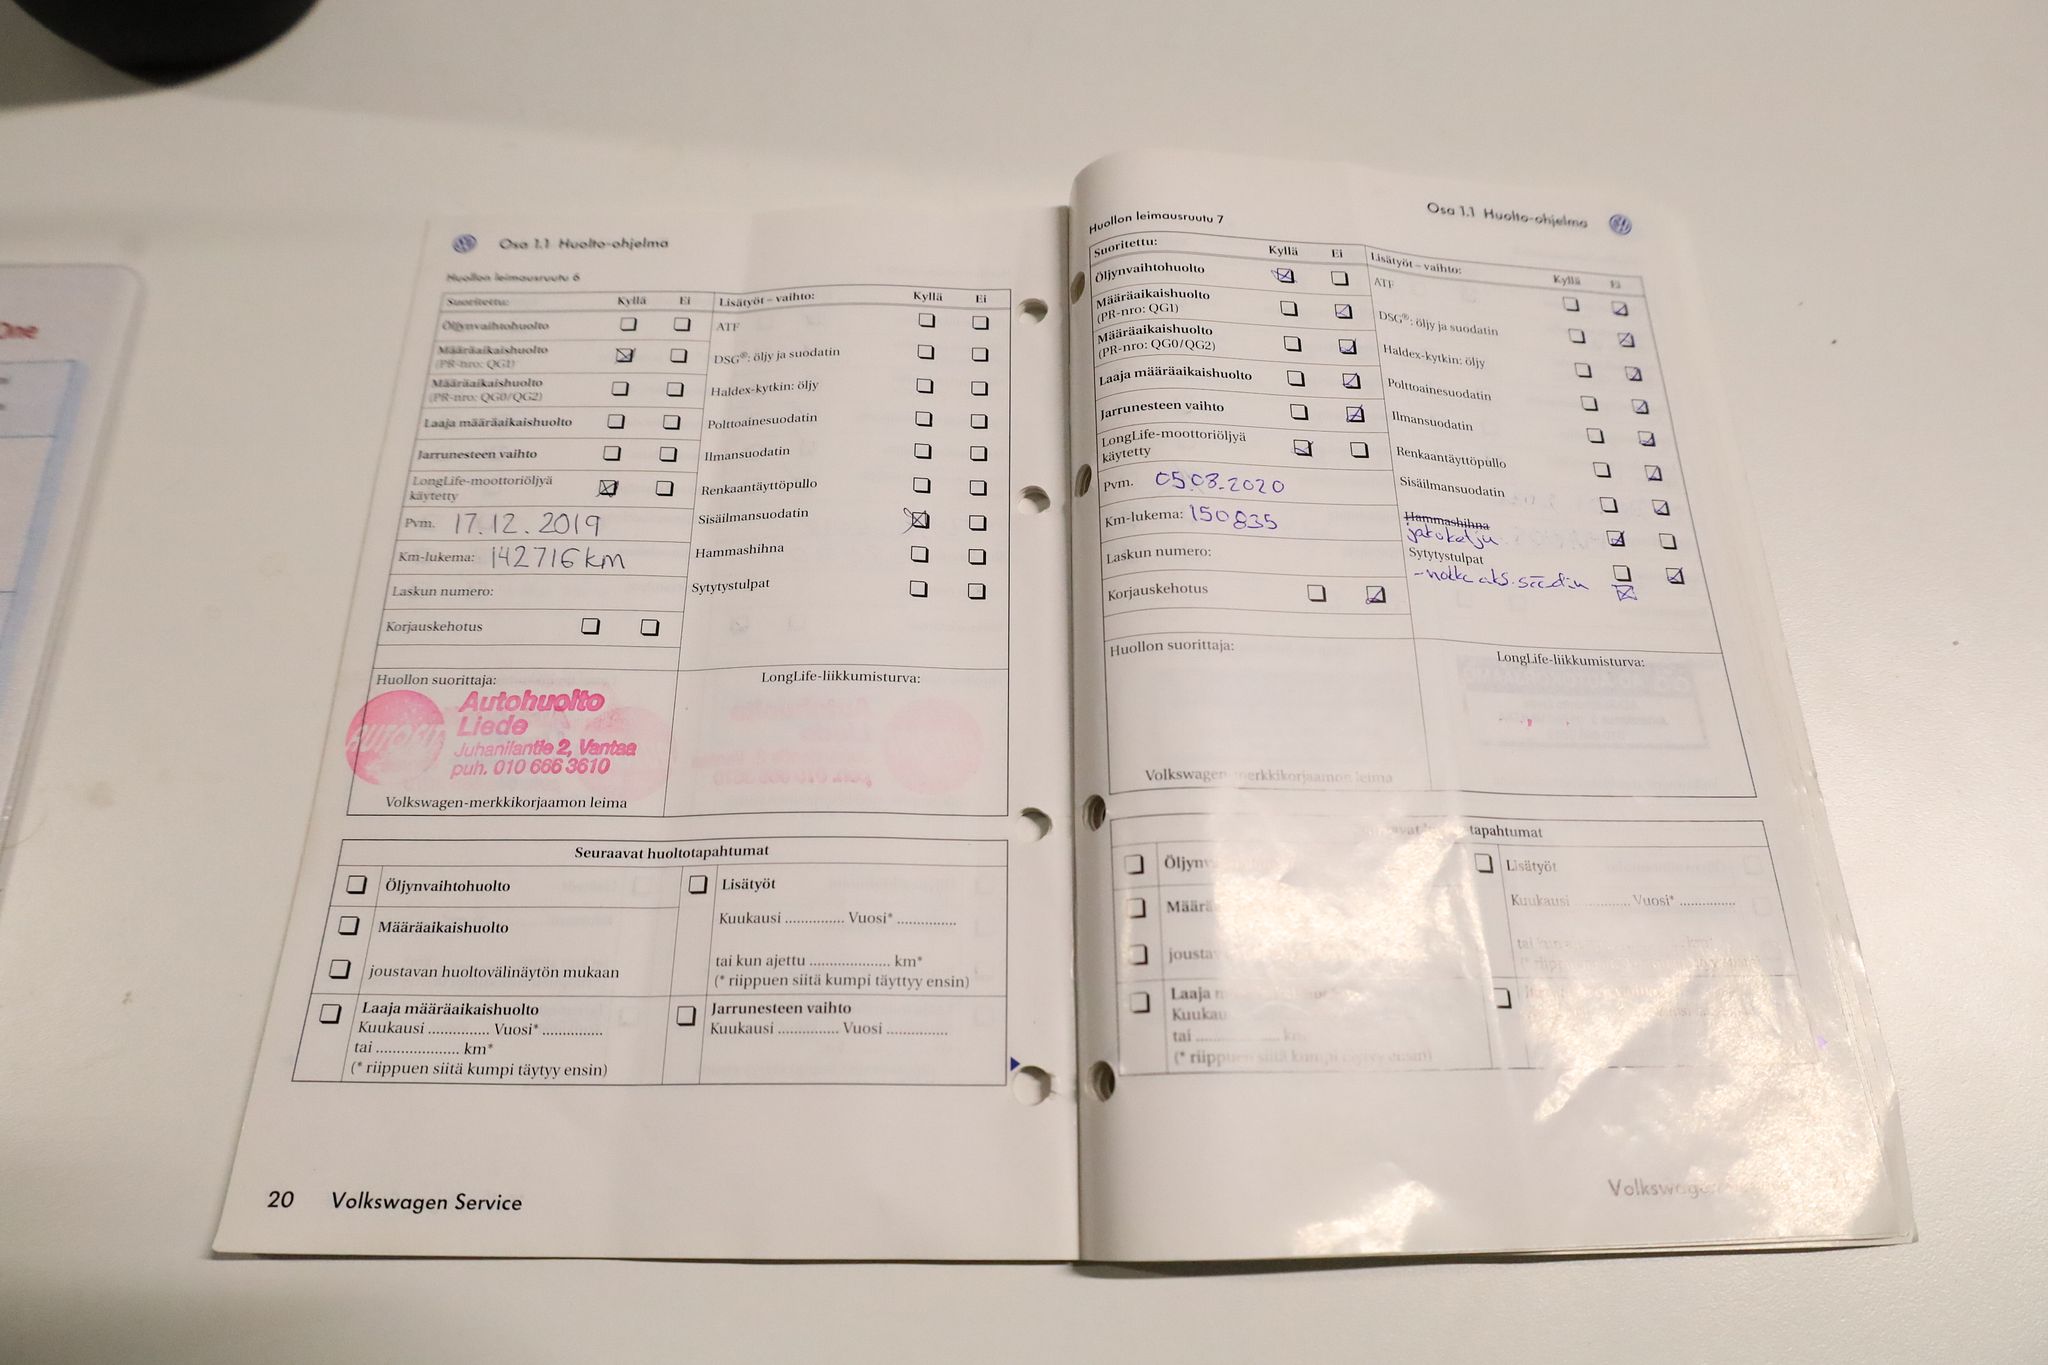 One
Osa 1.1 Huolto-ohjelma
Huollon leimausruutu 6
Suoritettu: Kyllä Ei
Öljynvaihtohuolto
Määräaikaishuolto
(PR-nro: QG1)
Määräaikaishuolto
(PR-nro: QG0/QG2)
Laaja määräaikaishuolto
Jarrunesteen vaihto
LongLife-moottoriöljyä
käytetty
Pvm. 17.12.2019
Km-lukema: 142716 km
Laskun numero:
Korjauskehotus
Lisätyöt – vaihto: Kyllä Ei
ATF
DSG®: öljy ja suodatin
Haldex-kytkin: öljy
Polttoainesuodatin
Ilmansuodatin
Renkaantäyttöpullo
Sisäilmansuodatin
Hammashihna
Sytytystulpat
Huollon suorittaja:
Autohuolto
Liede
Juhanilantie 2, Vantaa
puh. 010 666 3610
Volkswagen-merkkikorjaamon leima
LongLife-liikkumisturva:
Seuraavat huoltotapahtumat
Öljynvaihtohuolto
Määräaikaishuolto
joustavan huoltovälinäytön mukaan
Laaja määräaikaishuolto
Kuukausi ............... Vuosi* ...............
tai .................... km*
(* riippuen siitä kumpi täytyy ensin)
Lisätyöt
Kuukausi ............... Vuosi* ...............
tai kun ajettu .................... km*
(* riippuen siitä kumpi täyttyy ensin)
Jarrunesteen vaihto
Kuukausi ............... Vuosi ...............
20 Volkswagen Service
Osa 1.1 Huolto-ohjelma
Huollon leimausruutu 7
Suoritettu: Kyllä Ei
Öljynvaihtohuolto
Määräaikaishuolto
(PR-nro: QG1)
Määräaikaishuolto
(PR-nro: QG0/QG2)
Laaja määräaikaishuolto
Jarrunesteen vaihto
LongLife-moottoriöljyä
käytetty
Pvm. 05.03.2020
Km-lukema: 150835
Laskun numero:
Korjauskehotus
Lisätyöt – vaihto: Kyllä Ei
ATF
DSG®: öljy ja suodatin
Haldex-kytkin: öljy
Polttoainesuodatin
Ilmansuodatin
Renkaantäyttöpullo
Sisäilmansuodatin
Hammashihna
jakoketju
Sytytystulpat
- nokka aks. säädin
Huollon suorittaja:
Volkswagen-merkkikorjaamon leima
LongLife-liikkumisturva:
tapahtumat
Öljyn
Määrä
jousta
Laaja
Kuukau
tai .................... km
(* riippuen siitä kumpi täytyy ensin)
Lisätyöt
Kuukausi ............... Vuosi* ...............
Volkswage